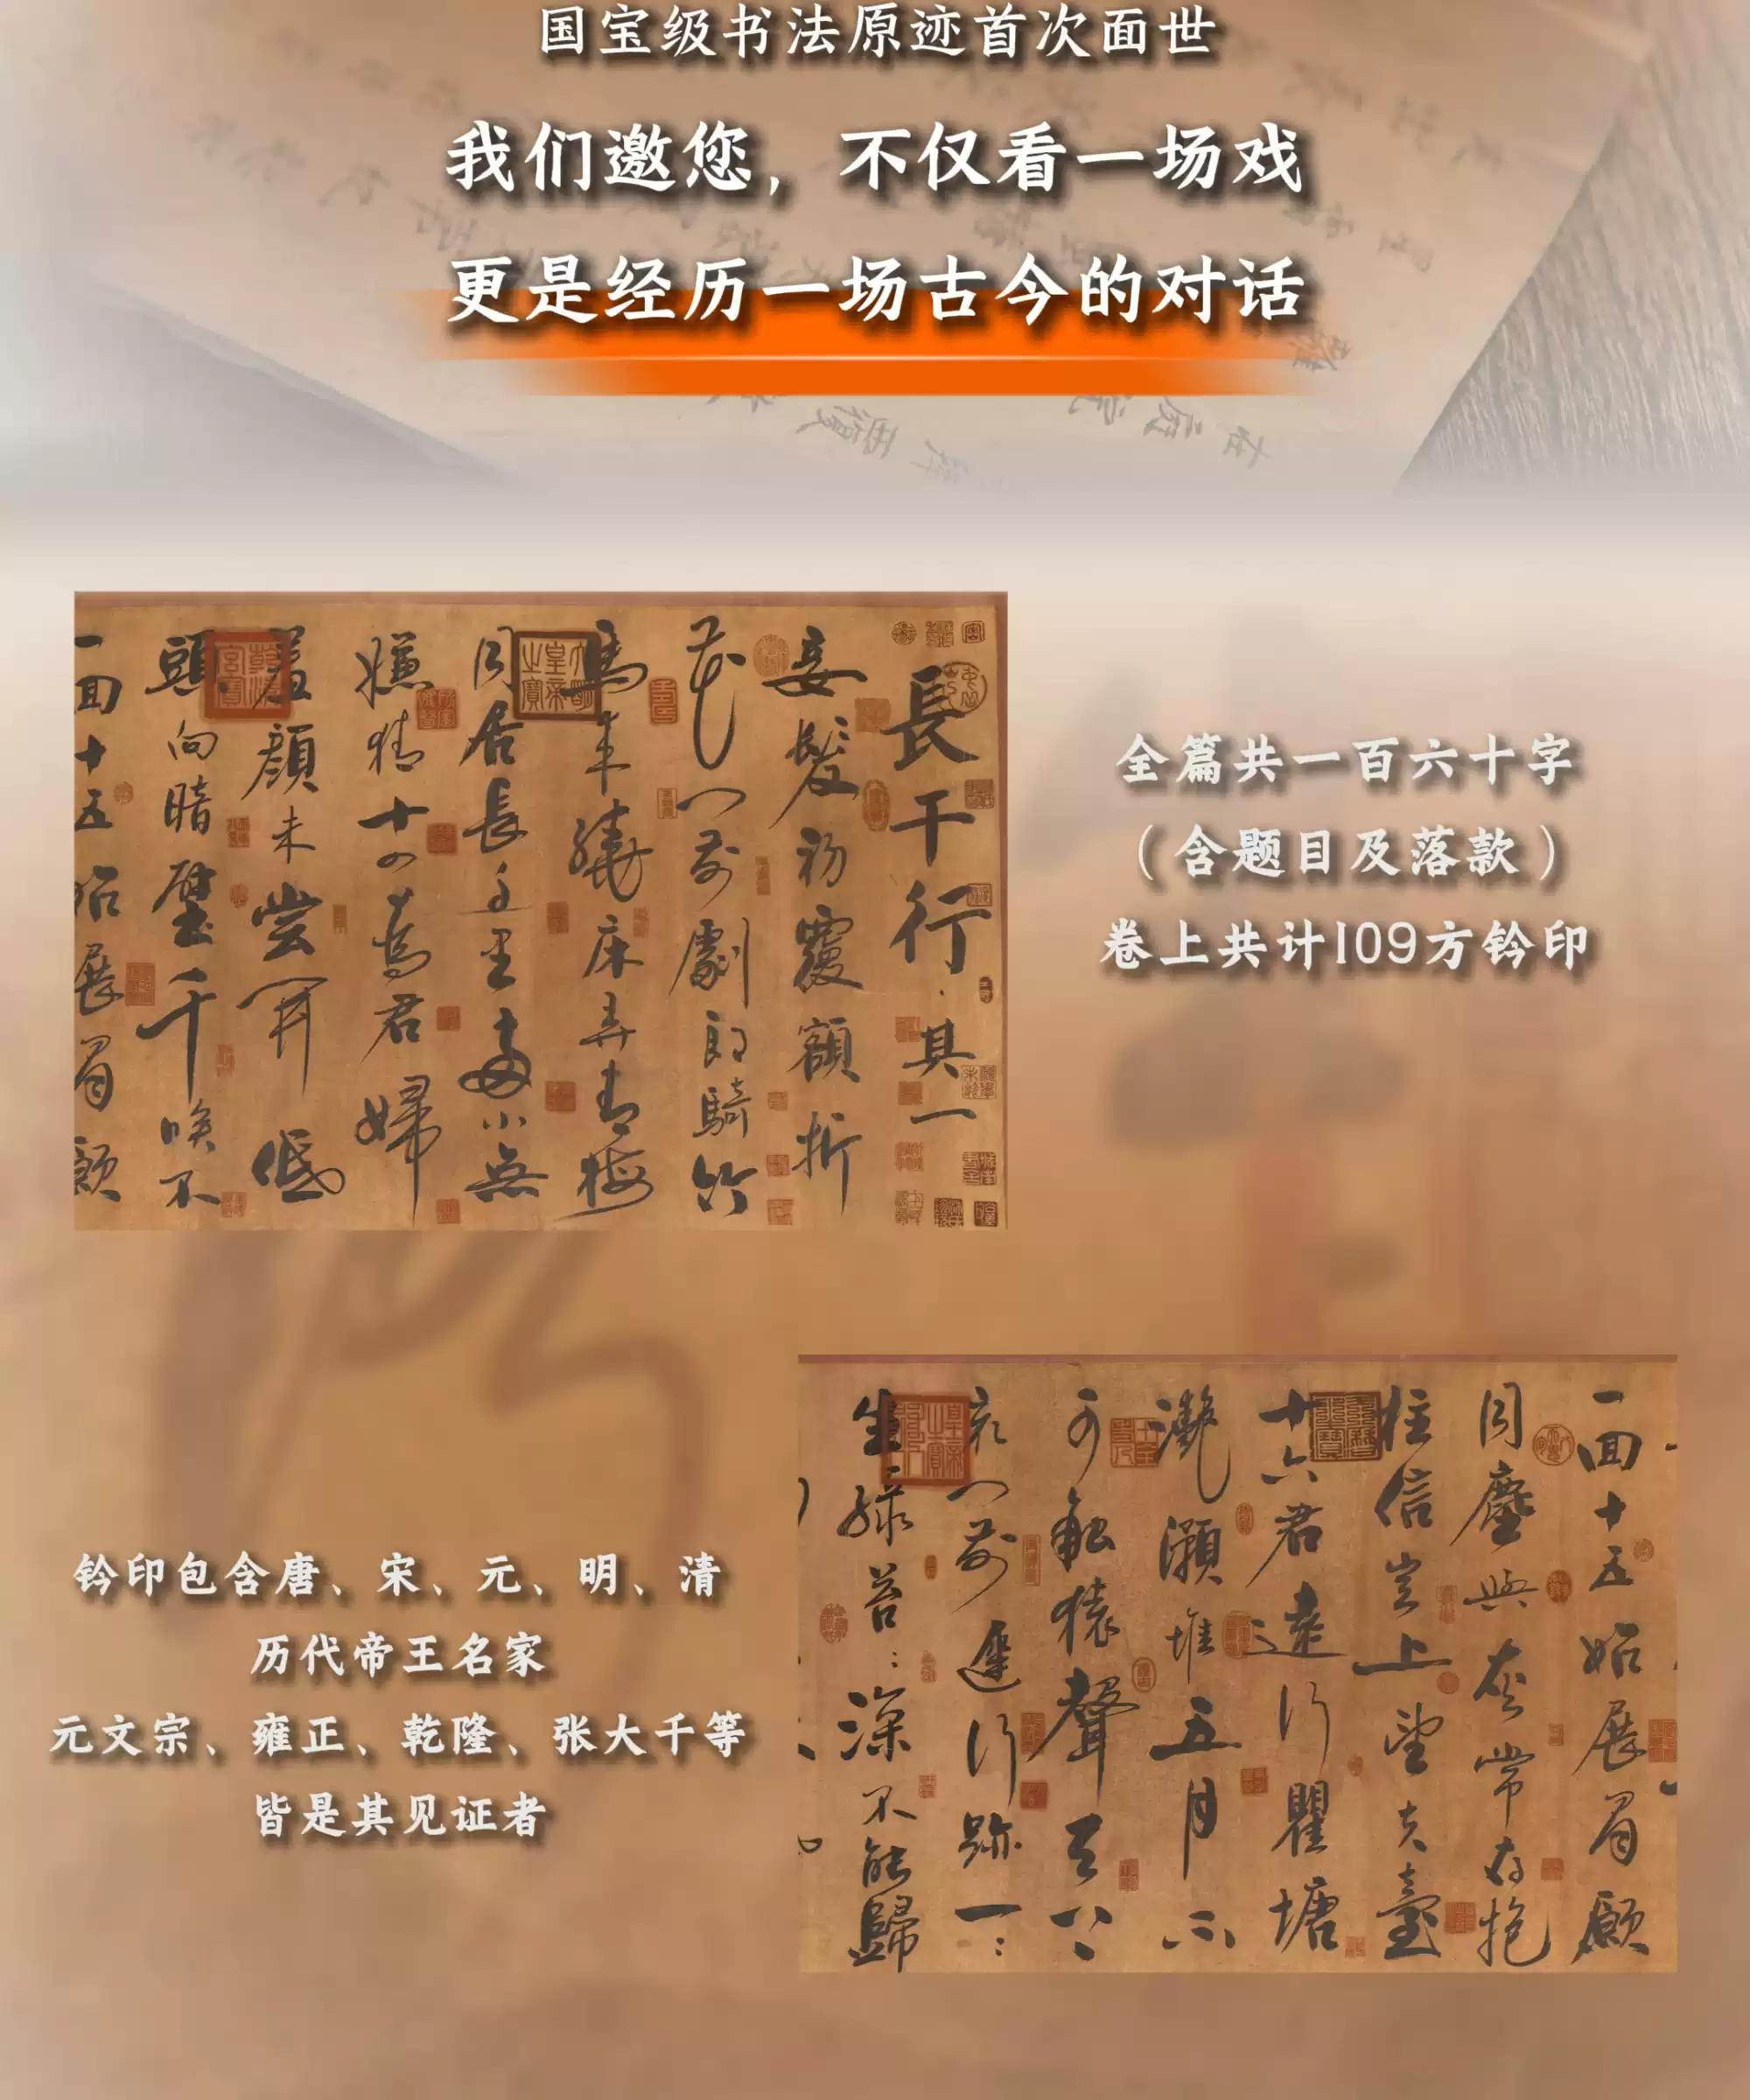 国宝级书法原迹首次面世
我们邀您，不仅看一场戏
更是经历一场古今的对话
長干行·其一
妾髮初覆額折
花门前劇郎騎竹
馬来繞床弄青梅
同居長干里兩小無
嫌猜十四為君婦
羞顏未尝開低
頭向暗壁千唤不
一回十五始展眉願
全篇共一百六十字
（含题目及落款）
卷上共计109方钤印
一回十五始展眉願
同塵與灰常存抱
柱信豈上望夫臺
十六君遠行瞿塘
灔澦堆五月不
可觸猿聲天上
哀门前遲行跡一:
生綠苔:深不能歸
钤印包含唐、宋、元、明、清
历代帝王名家
元文宗、雍正、乾隆、张大千等
皆是其见证者